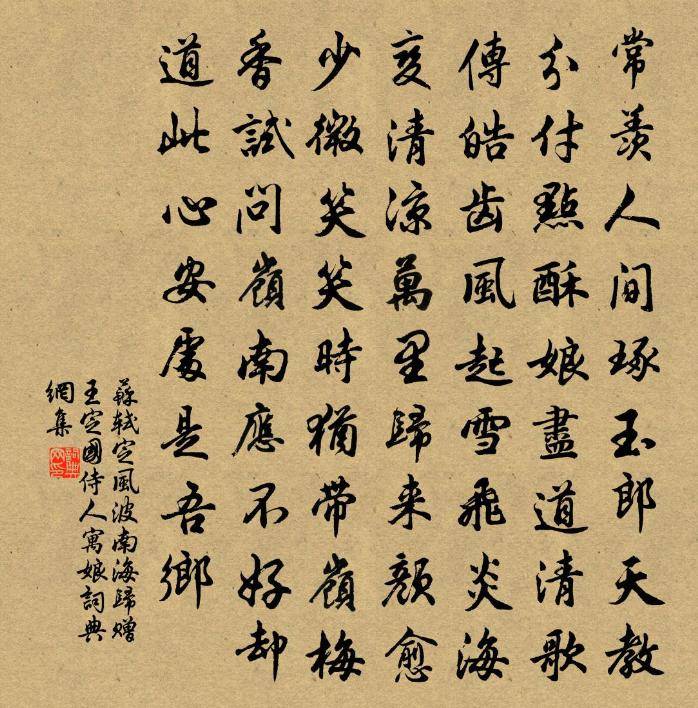 常羡人间琢玉郎天教
分付點酥娘盡道清歌
傳皓齿風起雪飛炎海
变清凉萬里歸来颜愈
少微笑笑時猶带嶺梅
香試问嶺南應不好却
道此心安處是吾鄉
蘇轼定風波南海歸赠
王定國侍人寓娘詞典
網集